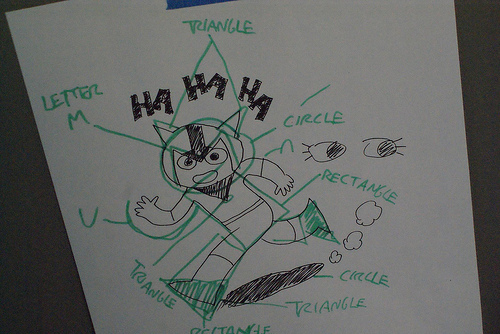 TRIANGLE
HA HA HA
LETTER
M
CIRCLE
n
RECTANGLE
U
TRIANGLE
CIRCLE
TRIANGLE
RECTANGLE